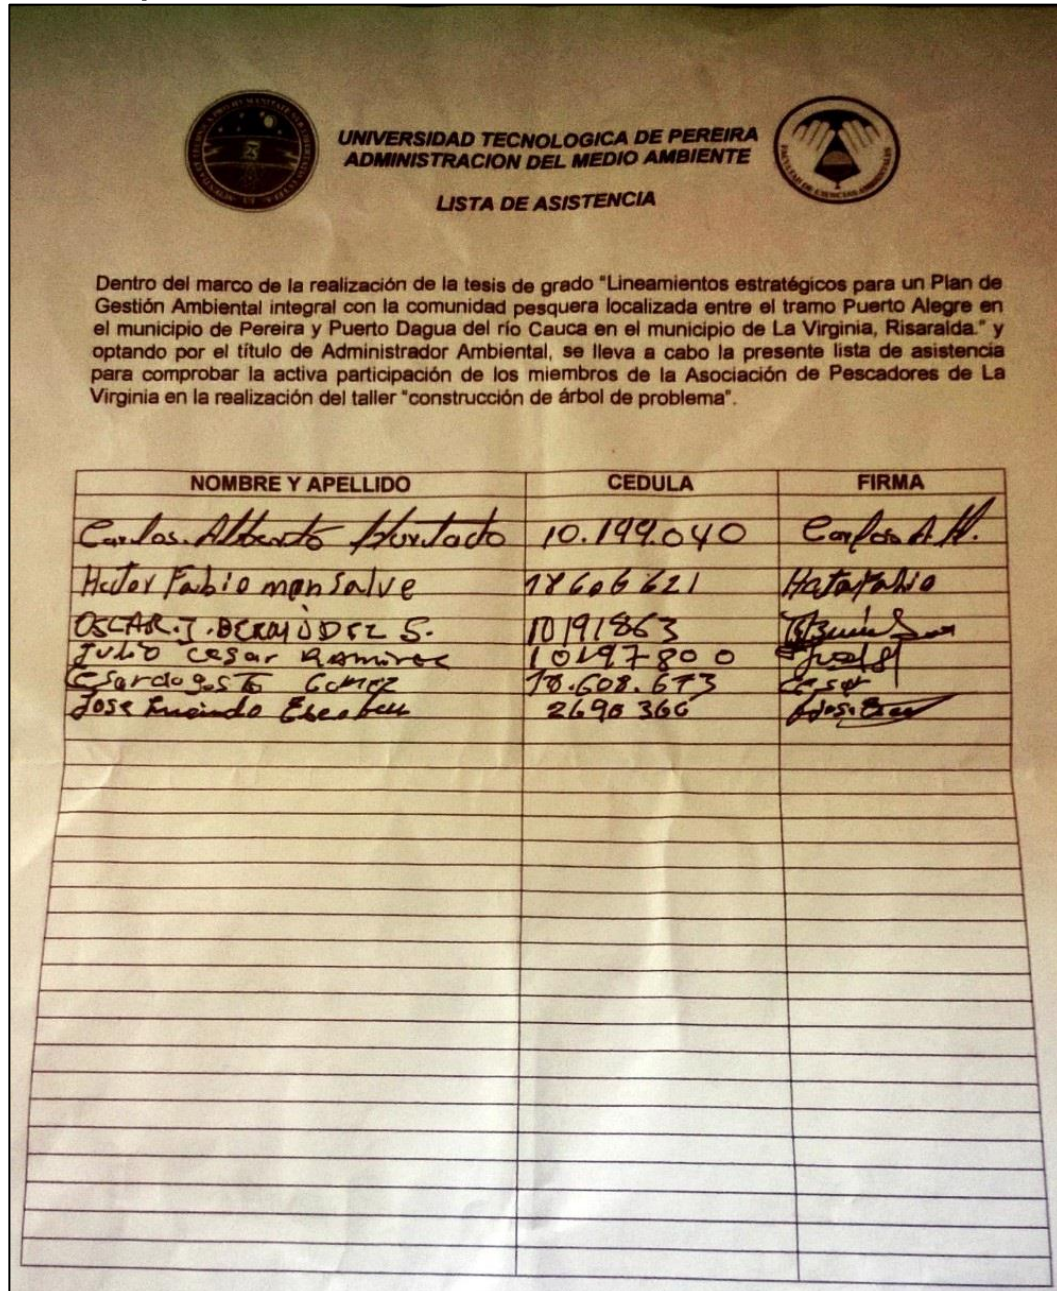 UNIVERSIDAD TECNOLOGICA DE PEREIRA
ADMINISTRACION DEL MEDIO AMBIENTE
LISTA DE ASISTENCIA
FACULTAD DE CIENCIAS AMBIENTALES
Dentro del marco de la realización de la tesis de grado "Lineamientos estratégicos para un Plan de
Gestión Ambiental integral con la comunidad pesquera localizada entre el tramo Puerto Alegre en
el municipio de Pereira y Puerto Dagua del río Cauca en el municipio de La Virginia, Risaralda." y
optando por el título de Administrador Ambiental, se lleva a cabo la presente lista de asistencia
para comprobar la activa participación de los miembros de la Asociación de Pescadores de La
Virginia en la realización del taller "construcción de árbol de problema".
NOMBRE Y APELLIDO CEDULA FIRMA
Carlos. Alberto Hurtado 10.199.040 Carlos A H.
Fabio monsalve 18606621
OSCAR. J. BERMÚDEZ S. 10191863
Julio cesar Ramirez 10197800
Gomez 18.608.673 cesar
Jose 2690366